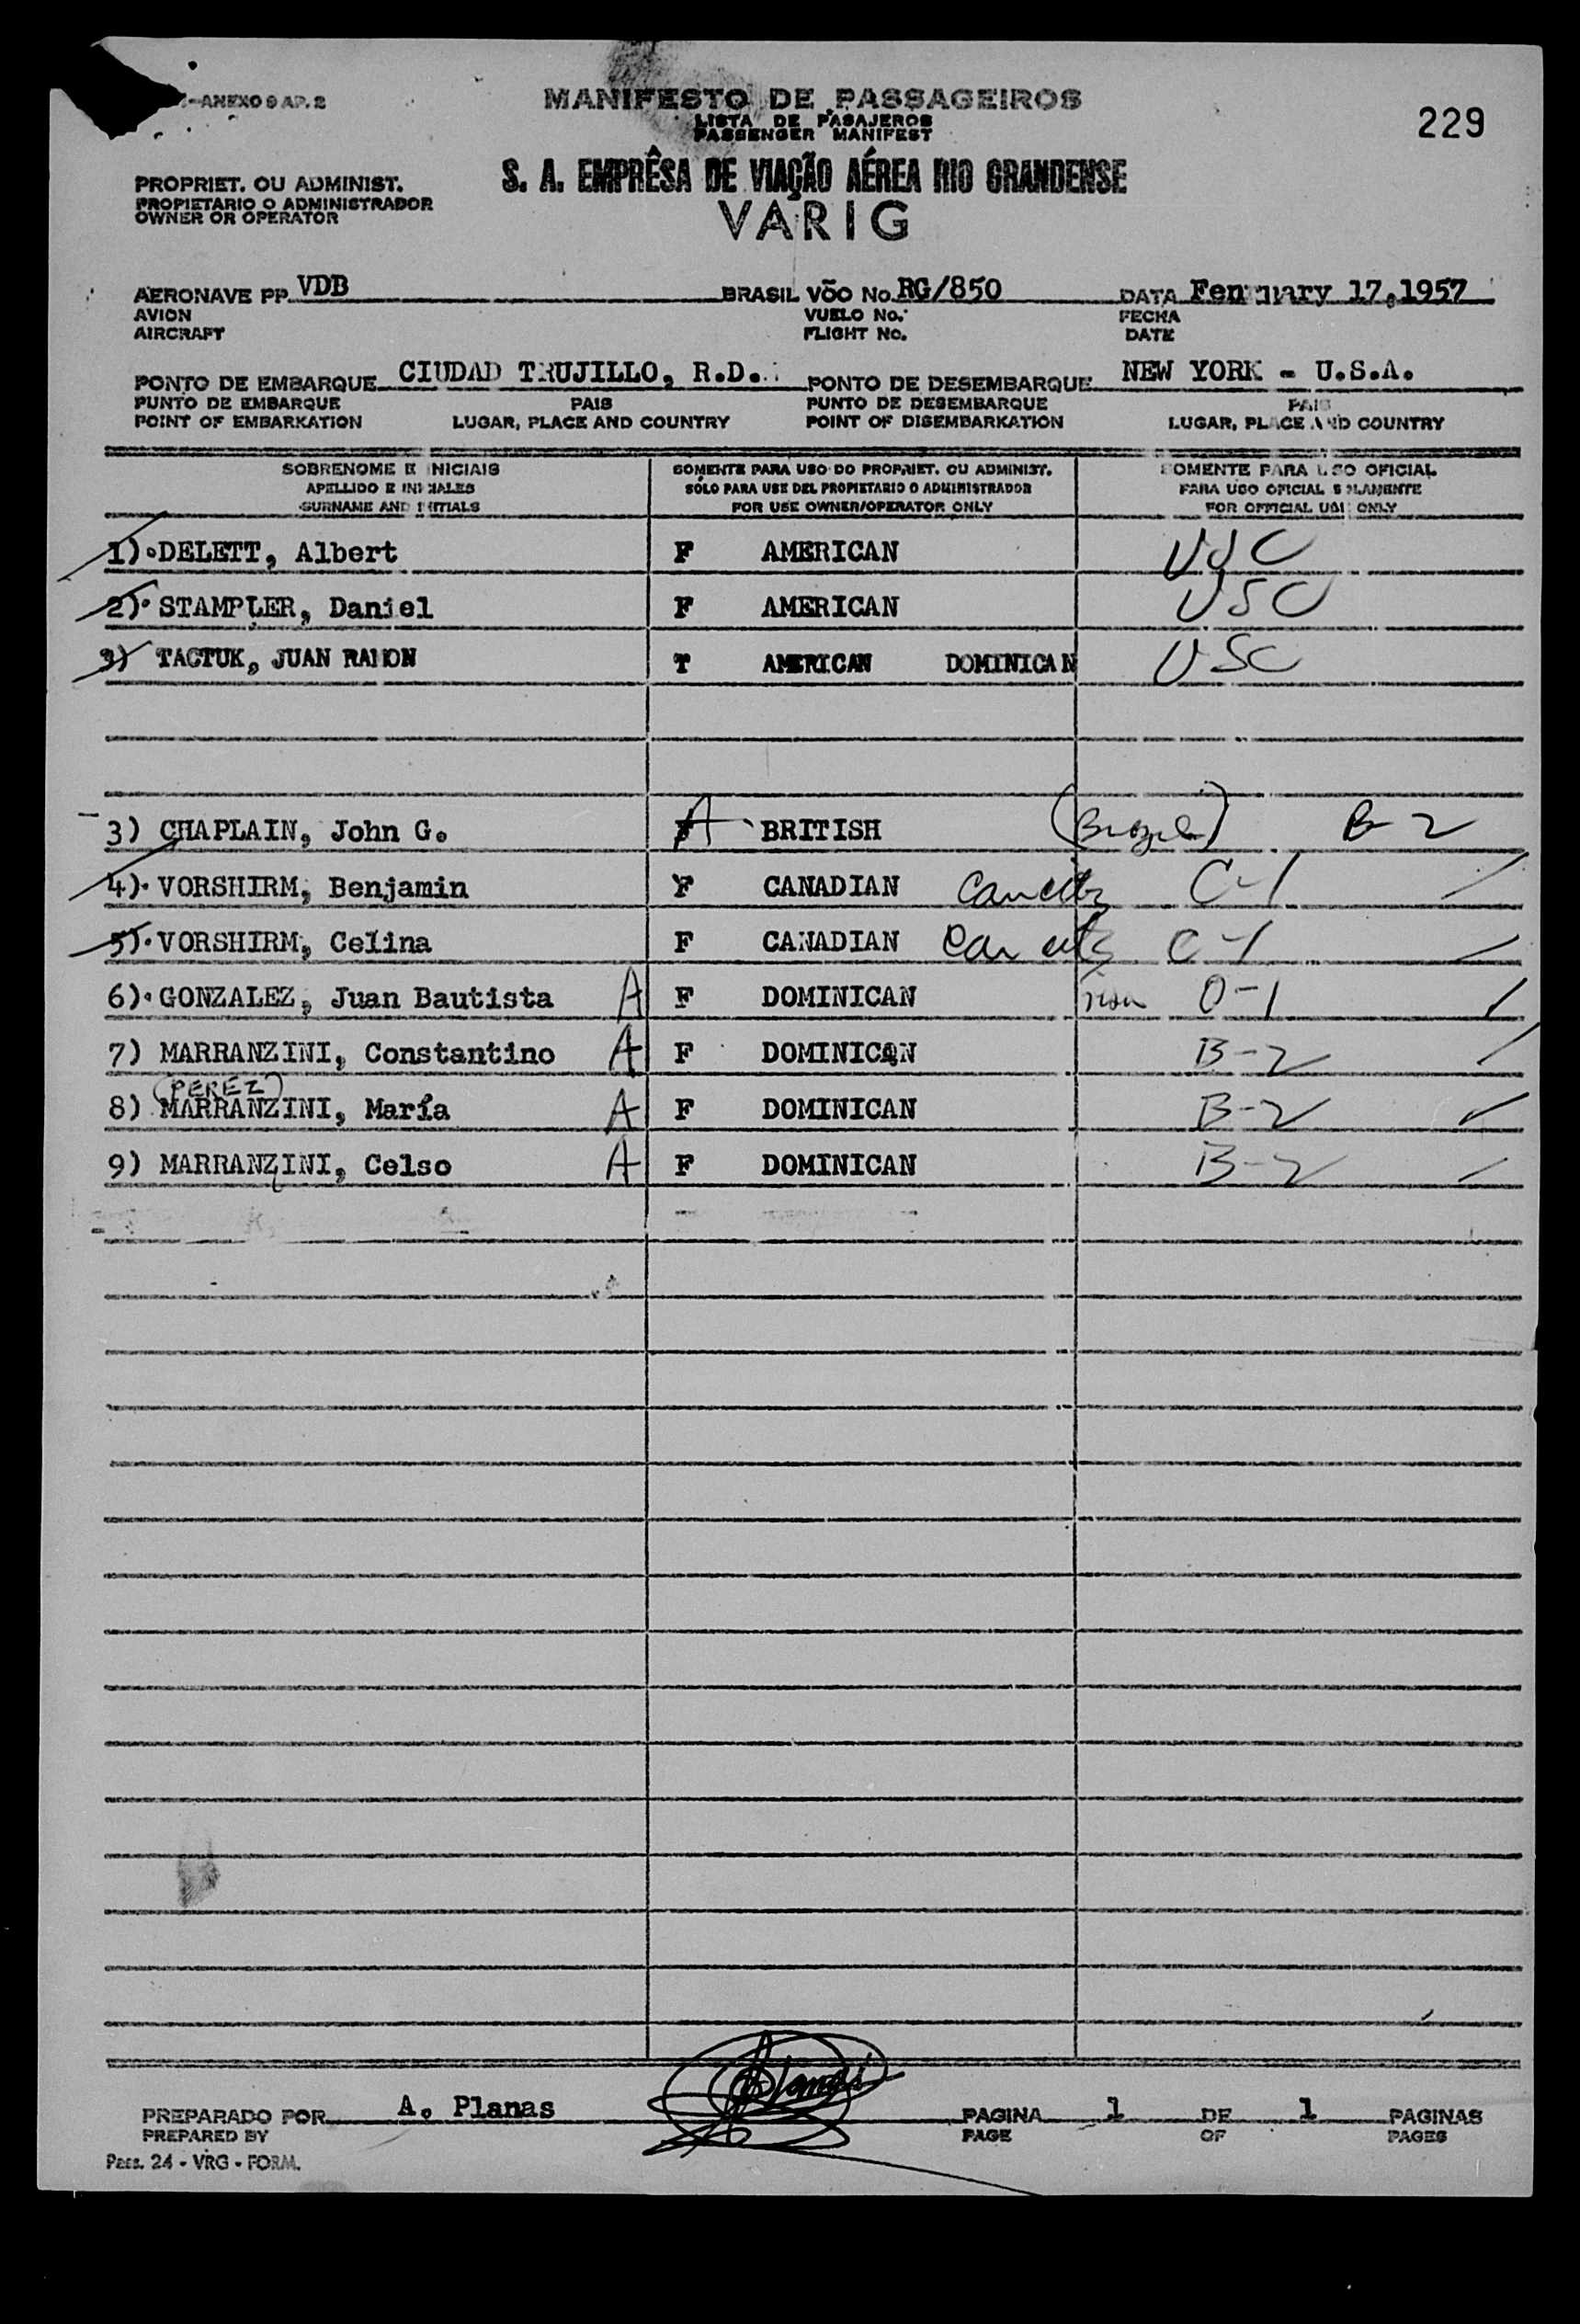 -ANEXO 9 AP. 2
MANIFESTO DE PASSAGEIROS
LISTA DE PASAJEROS
PASSENGER MANIFEST
229
S. A. EMPRÊSA DE VIAÇÃO AÉREA RIO GRANDENSE
VARIG
PROPRIET. OU ADMINIST.
PROPIETARIO O ADMINISTRADOR
OWNER OR OPERATOR
AERONAVE PP VDB BRASIL VÕO No. RG/850 DATA February 17,1957
AVION VUELO No. FECHA
AIRCRAFT FLIGHT No. DATE
PONTO DE EMBARQUE CIUDAD TRUJILLO, R.D. PONTO DE DESEMBARQUE NEW YORK - U.S.A.
PUNTO DE EMBARQUE PAIS PUNTO DE DESEMBARQUE PAIS
POINT OF EMBARKATION LUGAR, PLACE AND COUNTRY POINT OF DISEMBARKATION LUGAR, PLACE AND COUNTRY
SOBRENOME E INICIAIS SOMENTE PARA USO DO PROPRIET. OU ADMINIST. SOMENTE PARA USO OFICIAL
APELLIDO E INICIALES SÓLO PARA USE DEL PROPIETARIO O ADMINISTRADOR PARA USO OFICIAL SOLAMENTE
SURNAME AND INITIALS FOR USE OWNER/OPERATOR ONLY FOR OFFICIAL USE ONLY
1) DELETT, Albert F AMERICAN USC
2) STAMPLER, Daniel F AMERICAN USC
3) TACTUK, JUAN RAMON T AMERICAN DOMINICAN USC
3) CHAPLAIN, John G. A BRITISH (Brazil) B-2
4) VORSHIRM, Benjamin F CANADIAN C-1
5) VORSHIRM, Celina F CANADIAN C-1
6) GONZALEZ, Juan Bautista A F DOMINICAN O-1
7) MARRANZINI, Constantino A F DOMINICAN B-2
(PEREZ)
8) MARRANZINI, María A F DOMINICAN B-2
9) MARRANZINI, Celso A F DOMINICAN B-2
PREPARADO POR A. Planas A Planas PAGINA 1 DE 1 PAGINAS
PREPARED BY PAGE OF PAGES
Pass. 24 - VRG - FORM.